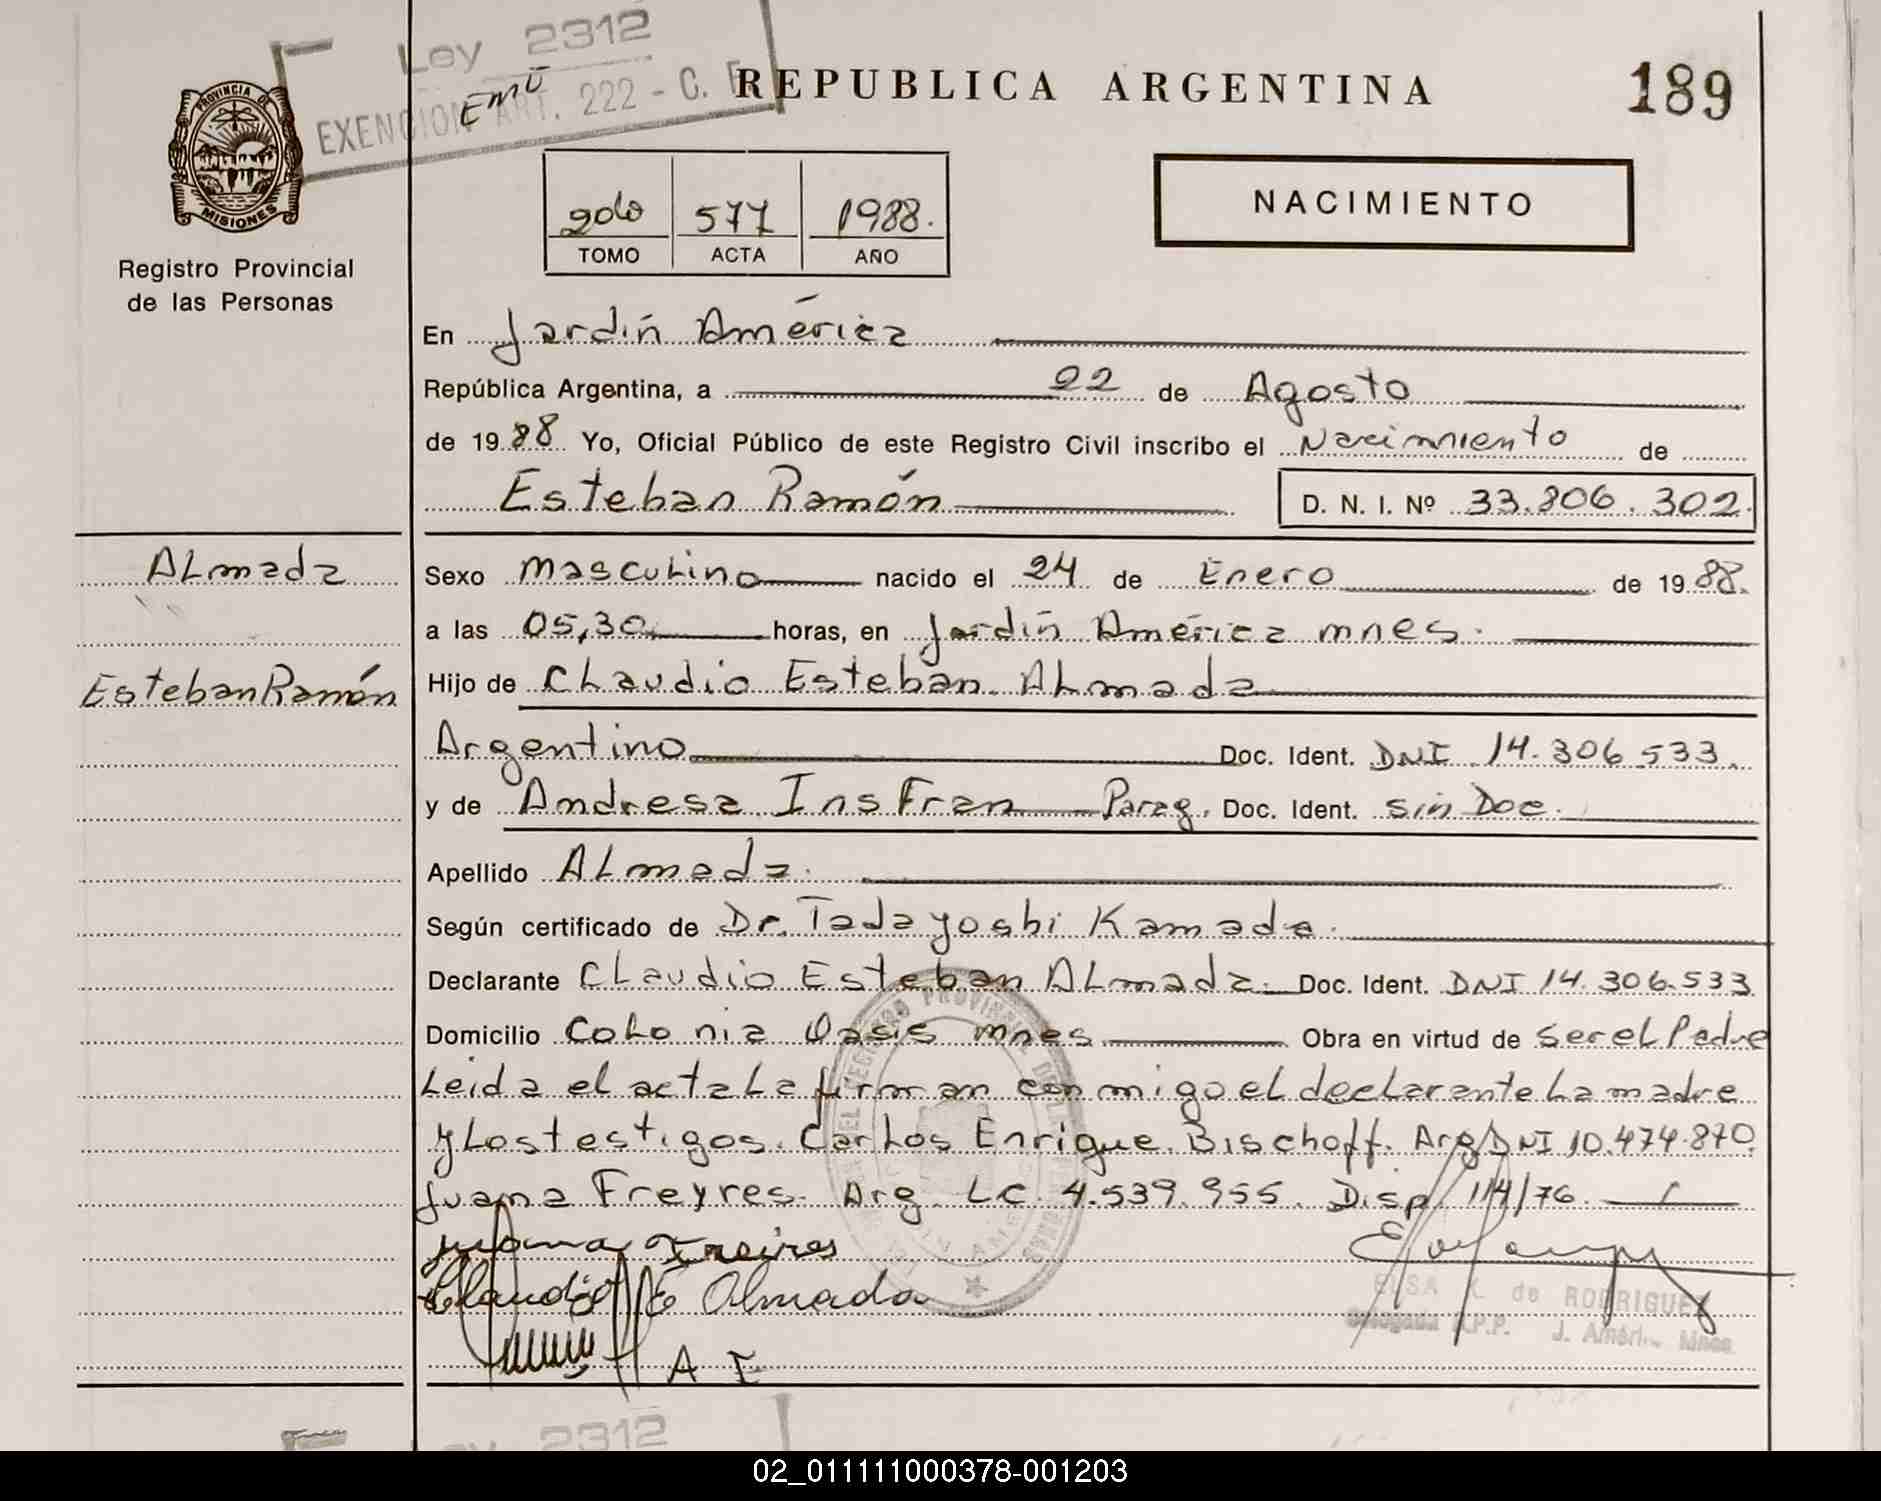 Ley 2312
EXENCION ART. 222 - C. F.
REPUBLICA ARGENTINA
189
PROVINCIA DE
MISIONES
Registro Provincial
de las Personas
2do 577 1988.
TOMO ACTA AÑO
NACIMIENTO
En Jardín América
República Argentina, a 22 de Agosto
de 1988 Yo, Oficial Público de este Registro Civil inscribo el Nacimiento de
Esteban Ramón D. N. I. Nº 33.806.302.
Almada
Esteban Ramón
Sexo Masculino nacido el 24 de Enero de 1988.
a las 05,30 horas, en Jardín América mnes.
Hijo de Claudio Esteban Almada
Argentino Doc. Ident. DNI 14.306.533.
y de Andresa Insfran Parag. Doc. Ident. sin Doc.
Apellido Almada.
Según certificado de Dr. Tadayoshi Kamada.
Declarante Claudio Esteban Almada. Doc. Ident. DNI 14.306.533
Domicilio Colonia Oasis mnes Obra en virtud de ser el Padre
Leida el acta la firman conmigo el declarante la madre
y los testigos. Carlos Enrique Bischoff. Arg DNI 10.474.870
Juana Freyres. Arg. LC. 4.539.955. Disp. 114/76.
Juana Freires
Claudio E Almada
A I
ELSA K. de RODRIGUEZ
Delegada R.P.P. J. Améri. Mnes.
2312
02_011111000378-001203